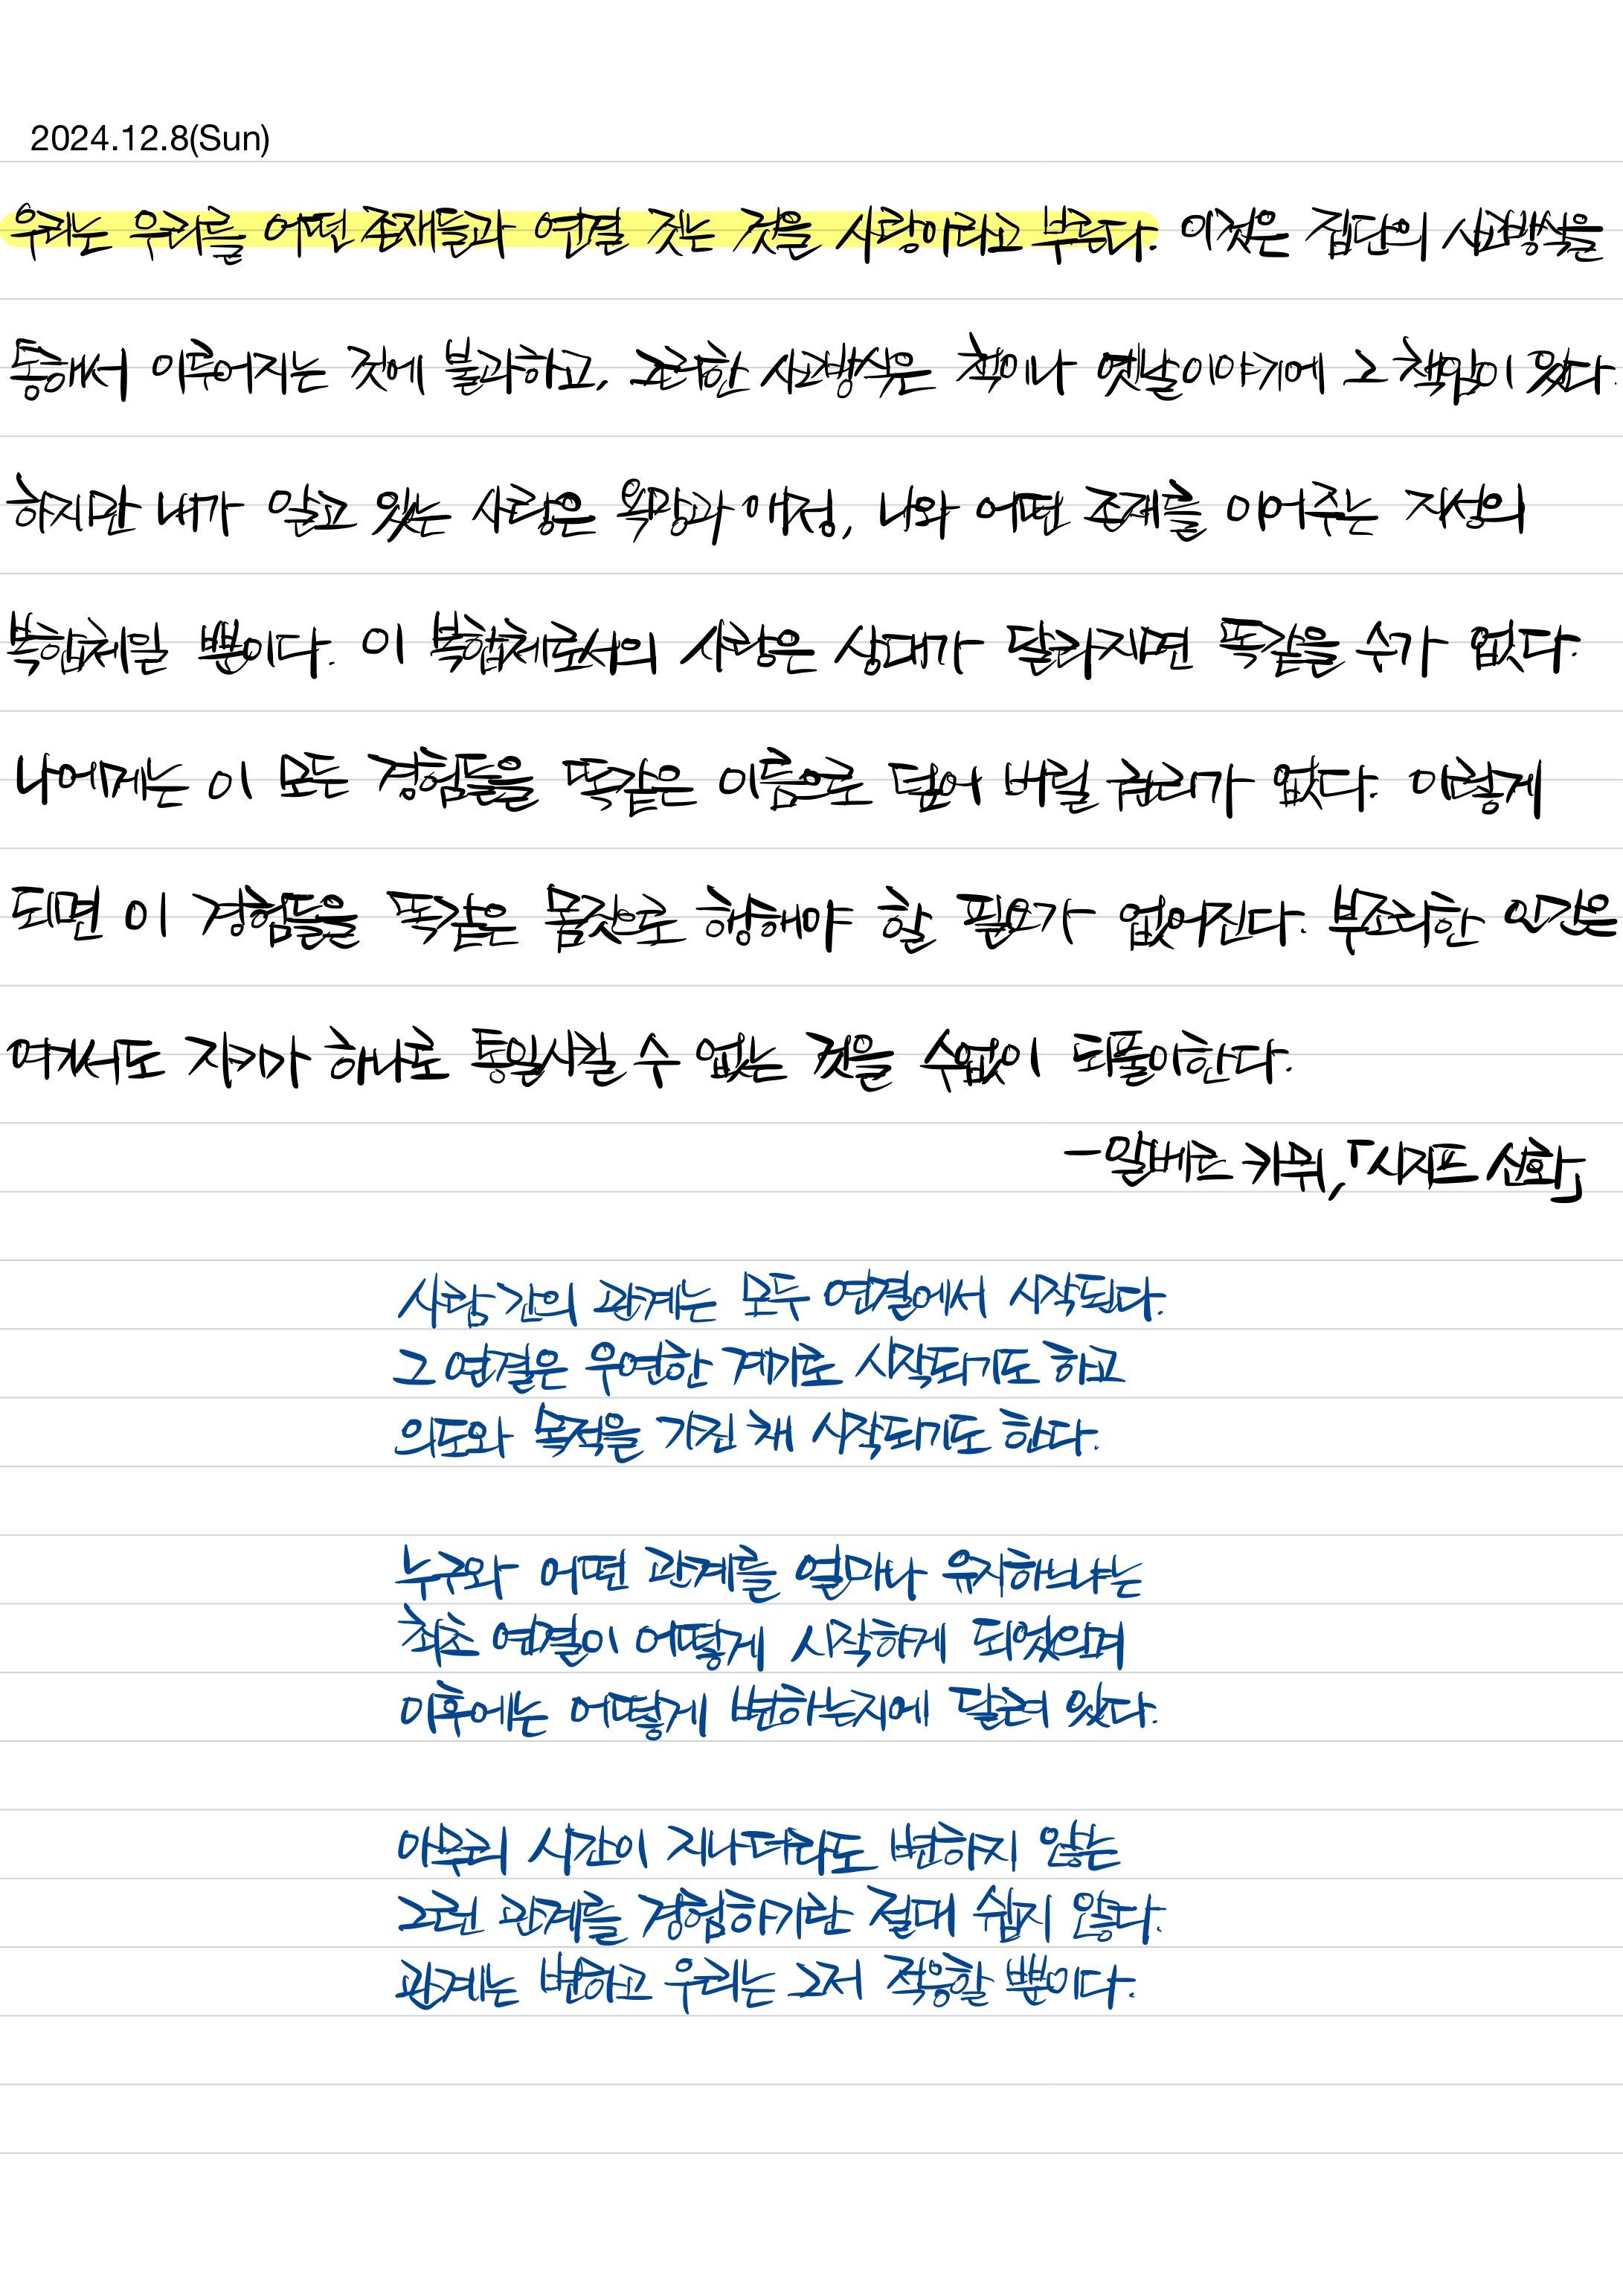 2024.12.8(Sun)
우리는 우리를 어떤 존재들과 연결 짓는 것을 사랑이라고 부른다. 이것은 집단의 사고방식을
통해서 이루어지는 것에 불과하고, 그러한 사고방식은 책이나 옛날이야기에 그 책임이 있다.
하지만 내가 알고 있는 사랑은 욕망과 애정, 나와 어떤 존재를 이어주는 지성의
복합체일 뿐이다. 이 복합체로서의 사랑은 상대가 달라지면 똑같을 수가 없다.
나에게는 이 모든 경험들을 똑같은 이름으로 덮어 버릴 권리가 없다. 이렇게
되면 이 경험들을 똑같은 몸짓으로 행해야 할 필요가 없어진다. 부조리한 인간은
여기서도 자기가 하나로 통일시킬 수 없는 것을 수없이 되풀이한다.
—알베르 카뮈, 「시지프 신화」
사람 간의 관계는 모두 연결에서 시작된다.
그 연결은 우연한 계기로 시작되기도 하고
의도와 목적을 가진 채 시작되기도 한다.
누구와 어떤 관계를 얼마나 유지하느냐는
최초 연결이 어떻게 시작하게 되었으며
이후에는 어떻게 변하는지에 달려 있다.
아무리 시간이 지나더라도 변하지 않는
그런 관계를 경험하기란 절대 쉽지 않다.
관계는 변하고 우리는 그저 적응할 뿐이다.